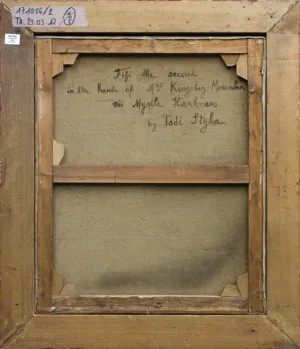 171096/2
TA 23.03
2
Fifi the second
in the hands of Mrs Kingsley
née Myrtle Harkness
by Tadé Styka